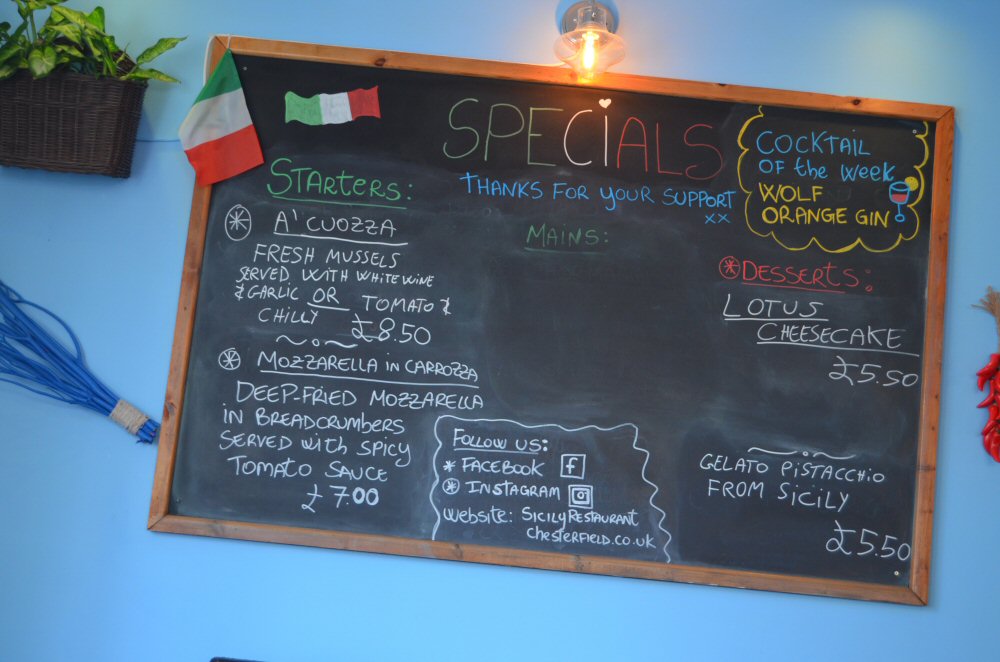 SPECIALS
THANKS FOR YOUR SUPPORT
xx
STARTERS:
A' CUOZZA
FRESH MUSSELS
SERVED WITH WHITE WINE
& GARLIC OR TOMATO &
CHILLY £8.50
MOZZARELLA IN CARROZZA
DEEP-FRIED MOZZARELLA
IN BREADCRUMBERS
SERVED WITH SPICY
TOMATO SAUCE
£7.00
MAINS:
FOLLOW US:
* FACEBOOK f
* INSTAGRAM
WEBSITE: SICILYRESTAURANT
CHESTERFIELD.CO.UK
COCKTAIL
OF the week
WOLF
ORANGE GIN
DESSERTS:
LOTUS
CHEESECAKE
£5.50
GELATO PISTACCHIO
FROM SICILY
£5.50